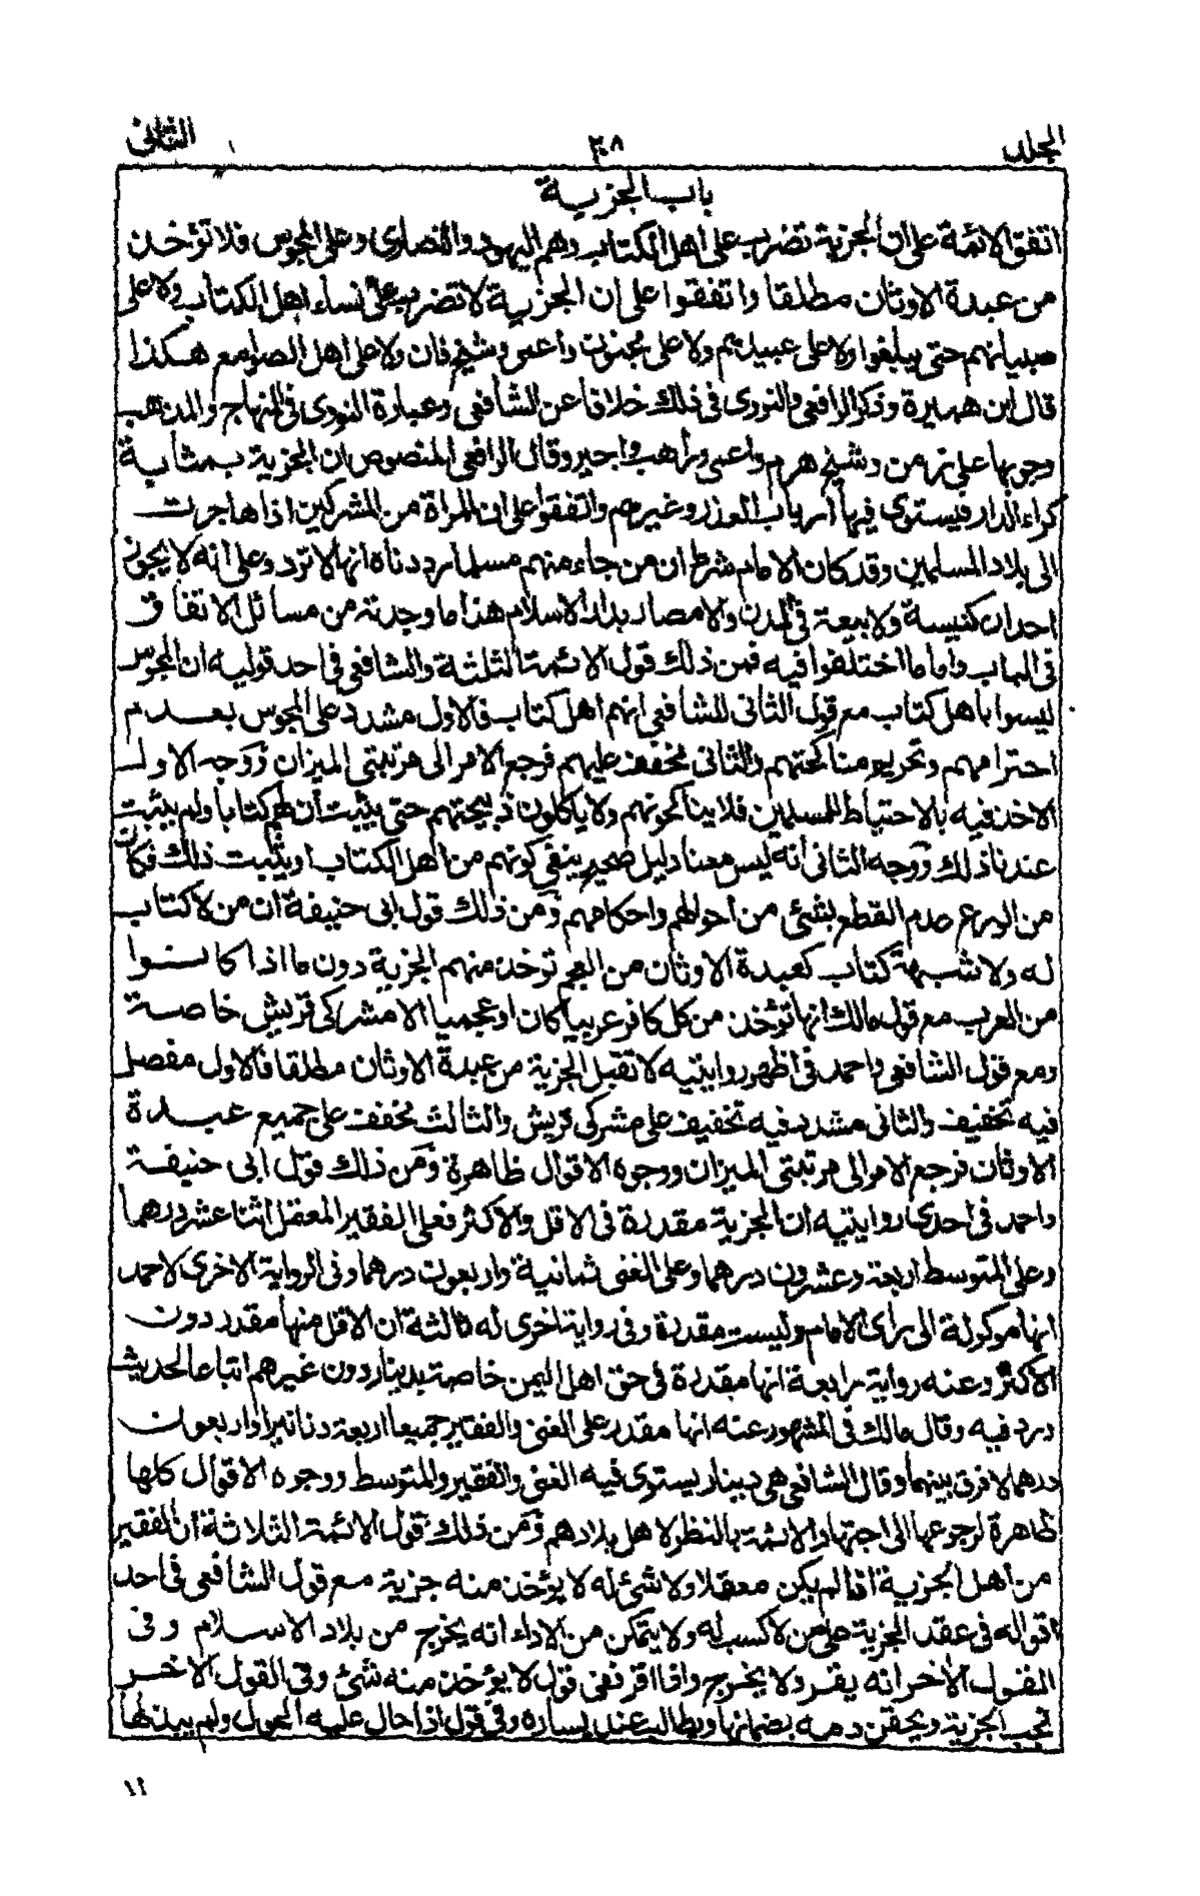 المجلد ٢٠٨ الثانى
باب الجزية
اتفق الائمة على ان الجزية تضرب على اهل الكتاب وهم اليهود والنصارى وعلى المجوس فلا تؤخذ
من عبدة الاوثان مطلقا واتفقوا على ان الجزية لا تضرب على نساء اهل الكتاب ولا على
صبيانهم حتى يبلغوا ولا على عبيدهم ولا على مجنون واعمى وشيخ فان ولا على اهل الصوامع هكذا
قال ابن هبيرة وذكر الرافعى والنووى فى ذلك خلافا عن الشافعى وعبارة النووى فى المنهاج والمذهب
وجوبها على زمن وشيخ هرم واعمى وراهب واجير وقال الرافعى المنصوص ان الجزية بمثابة
كراء الدار فيستوى فيها أرباب العذر وغيرهم واتفقوا على ان المراة من المشركين اذا هاجرت
الى بلاد المسلمين وقد كان الامام شرط ان من جاء منهم مسلما رددناه أنها لا ترد وعلى انه لا يجوز
احداث كنيسة ولا بيعة فى المدن والامصار بدار الاسلام هذا ما وجدته من مسائل الاتفاق
فى الباب واما ما اختلفوا فيه فمن ذلك قول الائمة الثلثة والشافعى فى احد قوليه ان المجوس
ليسوا باهل كتاب مع قول الثانى للشافعى انهم اهل كتاب فالاول مشدد على المجوس بعدم
احترامهم وتحريم مناكحتهم والثانى مخفف عليهم فرجع الامر الى مرتبتى الميزان ووجه الاول
الاخذ فيه بالاحتياط للمسلمين فلا يناكحونهم ولا ياكلون ذبيحتهم حتى يثبت أن لهم كتابا ولم يثبت
عندنا ذلك ووجه الثانى أنه ليس معنا دليل صحيح ينفى كونهم من اهل الكتاب او يثبت ذلك فكان
من الورع عدم القطع بشئ من أحوالهم واحكامهم ومن ذلك قول ابى حنيفة ان من لا كتاب
له ولا شبهة كتاب كعبدة الاوثان من العجم توخذ منهم الجزية دون ما اذا كانوا
من العرب مع قول مالك انها تؤخذ من كل كافر عربيا كان او عجميا الا مشركى قريش خاصة
ومع قول الشافعى واحمد فى اظهر روايتيه لا تقبل الجزية من عبدة الاوثان مطلقا فالاول مفصل
فيه تخفيف والثانى مشدد فيه تخفيف على مشركى قريش والثالث مخفف على جميع عبدة
الاوثان فرجع الامر الى مرتبتى الميزان ووجوه الاقوال ظاهرة ومن ذلك قول ابى حنيفة
واحمد فى احدى روايتيه ان الجزية مقدرة فى الاقل والاكثر فعلى الفقير المعتمل اثنا عشر درهما
وعلى المتوسط اربعة وعشرون درهما وعلى الغنى ثمانية واربعون درهما وفى الرواية الاخرى لاحمد
انها موكولة الى راى الامام وليست مقدرة وفى رواية اخرى له ثالثة ان الاقل منها مقدر دون
الاكثر وعنه رواية رابعة انها مقدرة فى حق اهل اليمن خاصة بدينار دون غيرهم اتباعا لحديث
ورد فيه وقال مالك فى المشهور عنه انها مقدر على الغنى والفقير جميعا اربعة دنانير او اربعون
درهما لا فرق بينهما وقال الشافعى هى دينار يستوى فيه الغنى والفقير والمتوسط ووجوه الاقوال كلها
ظاهرة لرجوعها الى اجتهاد الائمة بالنظر لاهل بلادهم ومن ذلك قول الائمة الثلاثة أن الفقير
من أهل الجزية اذا لم يكن معتملا ولا شئ له لا يؤخذ منه جزية مع قول الشافعى فى احد
اقواله فى عقد الجزية على من لا كسب له ولا يتمكن من الاداء انه يخرج من بلاد الاسلام وفى
القول الاخر انه يقر ولا يخرج واذا اقر ففى قول لا يؤخذ منه شئ وفى القول الاخر
تجب الجزية ويحقن دمه بضمانها ويطالب عند يساره وفى قول اذا حال عليه الحول ولم يبذلها
١١